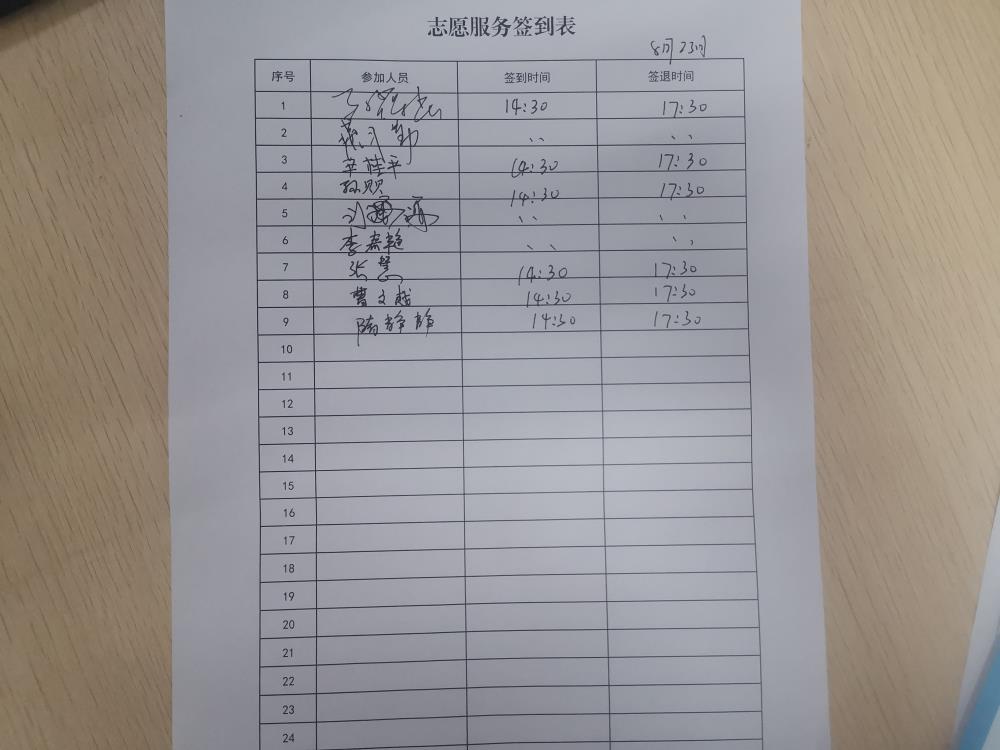 志愿服务签到表
8月23日
序号 参加人员 签到时间 签退时间
1 14:30 17:30
2 、、 、、
3 辛桂平 14:30 17:30
4 孙 14:30 17:30
5 刘 、、 、、
6 李春艳 、、 、、
7 张慧 14:30 17:30
8 曹文越 14:30 17:30
9 隋静静 14:30 17:30
10
11
12
13
14
15
16
17
18
19
20
21
22
23
24